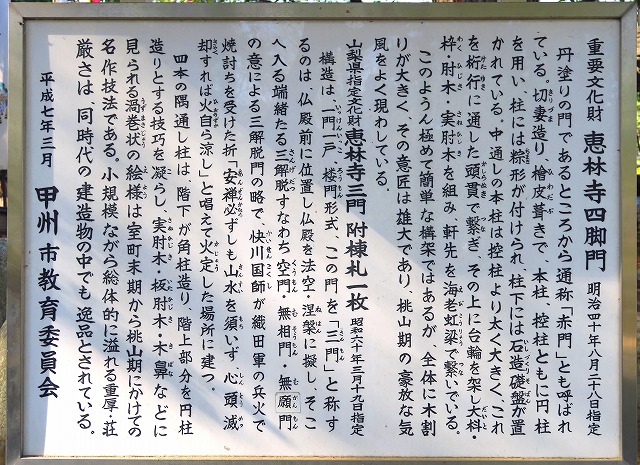 重要文化財 恵林寺四脚門 明治四十年八月二十八日指定
丹塗りの門であるところから通称「赤門」とも呼ばれ
ている。切妻造り、檜皮葺きで、本柱、控柱ともに円柱
を用い、柱には粽形が付けられ、柱下には石造礎盤が置
かれている。中通しの本柱は控柱より太く大きく、これ
を桁行に通した頭貫で繋ぎ、その上に台輪を架し大枓・
枠肘木・実肘木を組み、軒先を海老虹梁で繋いでいる。
このようん極めて簡単な構架ではあるが、全体に木割
りが大きく、その意匠は雄大であり、桃山期の豪放な気
風をよく現わしている。
山梨県指定文化財 恵林寺三門 附棟札一枚 昭和六十年三月十九日指定
構造は、一門一戸、楼門形式、この門を「三門」と称す
るのは、仏殿前に位置し仏殿を法空、涅槃に擬し、そこ
へ入る端緒たる三解脱すなわち空門・無相門・無願門
の意による三解脱門の略で、快川国師が織田軍の兵火で
焼討ちを受けた折「安禅必ずしも山水を須いず、心頭滅
却すれば火自ら涼し」と唱えて火定した場所に建つ。
四本の隅通し柱は、階下が角柱造り、階上部分を円柱
造りとする技巧を凝らし、実肘木・板肘木・木鼻などに
見られる渦巻状の絵様は室町末期から桃山期にかけての
名作技法である。小規模ながら総体的に溢れる重厚・荘
厳さは、同時代の建造物の中でも逸品とされている。
平成七年三月 甲州市教育委員会